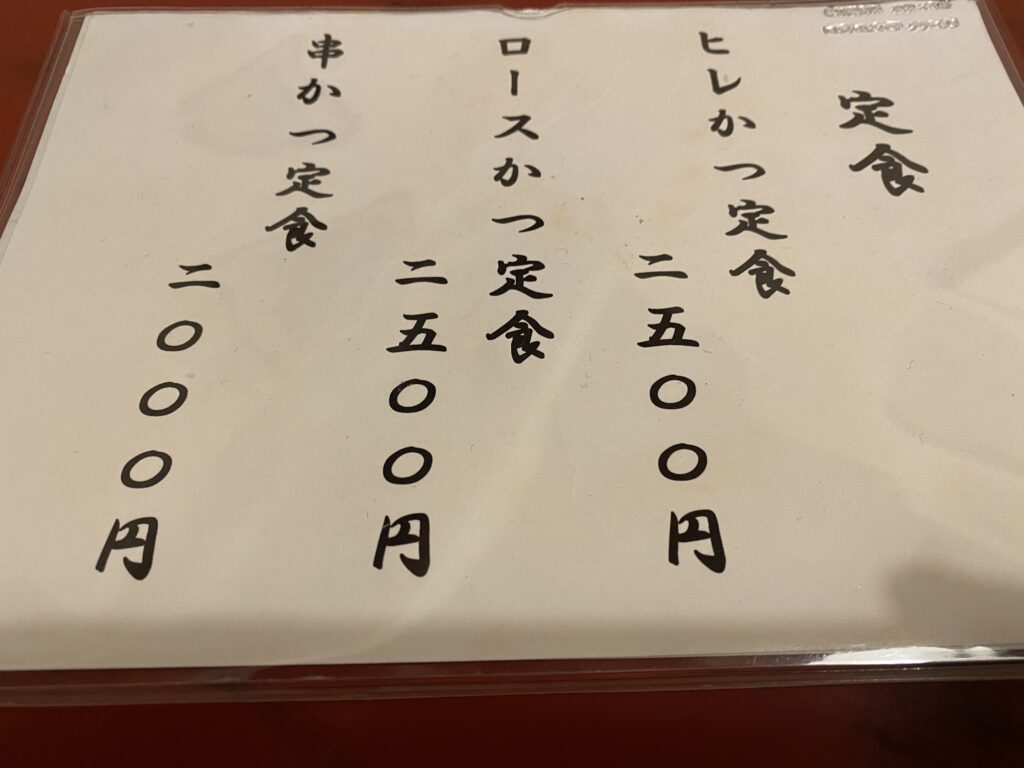 定食
ヒレかつ定食
二五〇〇円
ロースかつ定食
二五〇〇円
串かつ定食
二〇〇〇円